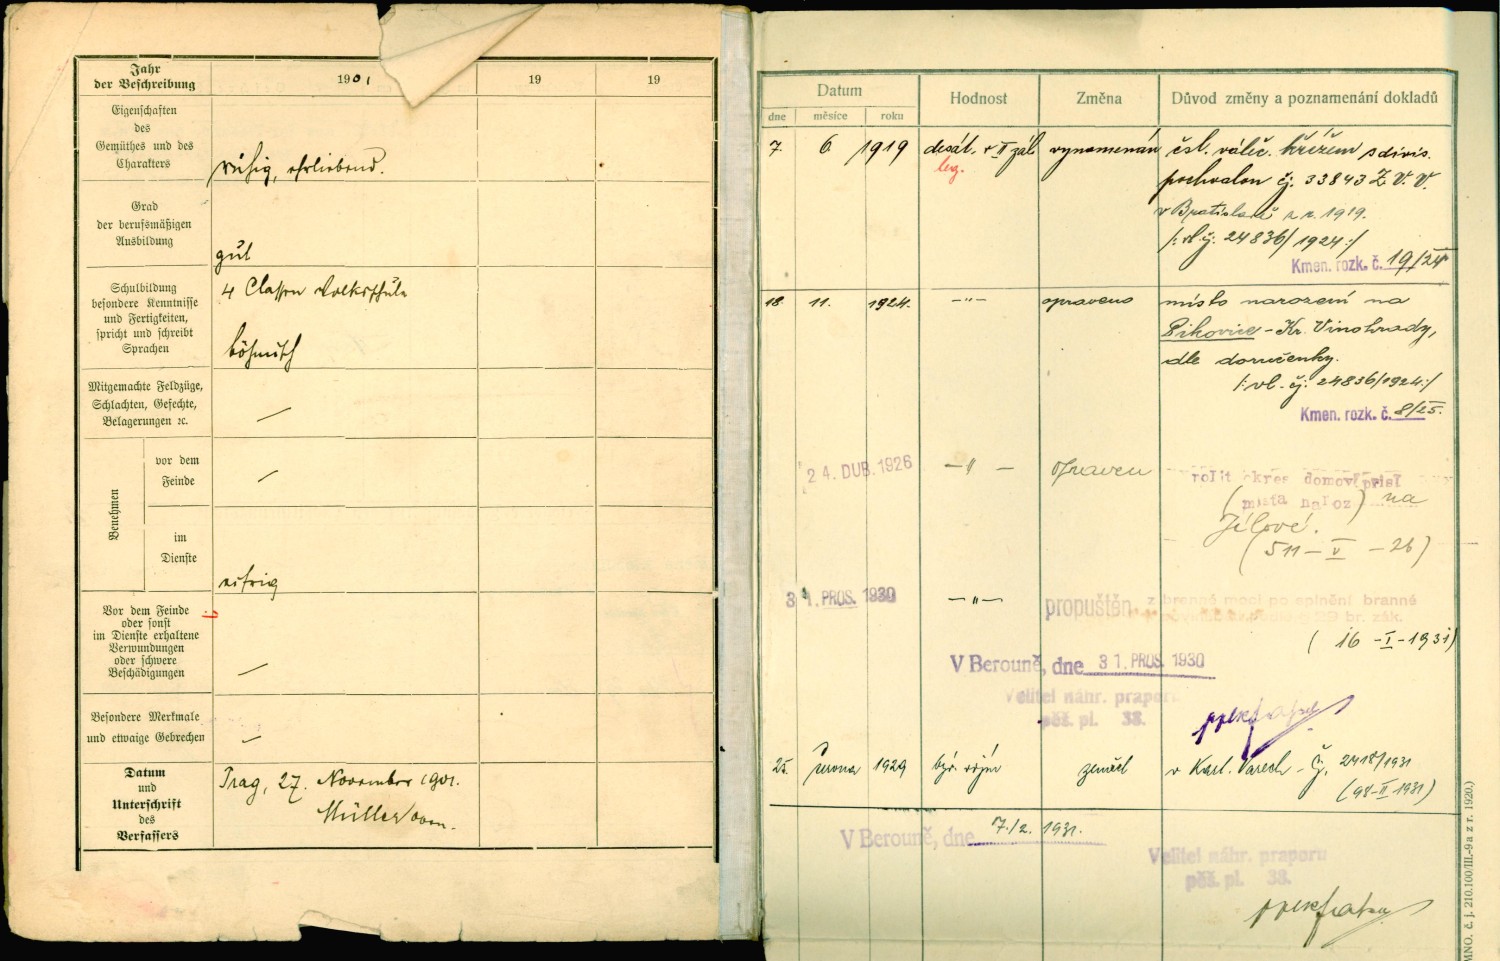 Jahr
der Beschreibung
1901
19
19
Eigenschaften
des
Gemüthes und des
Charakters
ruhig, ehrliebend.
Grad
der berufsmäßigen
Ausbildung
gut
Schulbildung
besondere Kenntnisse
und Fertigkeiten,
spricht und schreibt
Sprachen
4 Classen Volksschule
böhmisch
Mitgemachte Feldzüge,
Schlachten, Gefechte,
Belagerungen ꝛc.
—
Benehmen
vor dem
Feinde
—
im
Dienste
eifrig
Vor dem Feinde
oder sonst
im Dienste erhaltene
Verwundungen
oder schwere
Beschädigungen
—
Besondere Merkmale
und etwaige Gebrechen
—
Datum
und
Unterschrift
des
Verfassers
Prag, 27. November 1901.
Müller
Datum
Hodnost
Změna
Důvod změny a poznamenání dokladů
dne
měsíce
roku
7. 6. 1919 desát. v II zál. vyznamenán čsl. váleč. křížem s divis.
leg.
pochvalou čj. 33843 Z. V. V.
v Bratislavě z r. 1919.
/: vl. čj. 24836/1924 :/
Kmen. rozk. č. 19/24
18. 11. 1924. —"— opraveno místo narození na
Pikovice - Kr. Vinohrady,
dle doručenky.
/: vl. čj. 24836/1924 :/
Kmen. rozk. č. 8/25.
24. DUB. 1926 —"— opraven okres domov. přísl
( místa naroz ) na
Jílové.
( 511 - V - 26 )
31. PROS. 1930 —"— propuštěn z branné moci po splnění branné
29 br. zák.
( 16 - I - 1931 )
V Berouně, dne 31. PROS. 1930
Velitel náhr. praporu
pěš. pl. 38.
25. června 1929 býv. vojín zemřel v Karl. Varech - Čj. 2418/1931
( 98 - II - 1931 )
V Berouně, dne 7./2. 1931.
Velitel náhr. praporu
pěš. pl. 38.
MNO. č. j. 210.100/III.-9 a z r. 1920.)